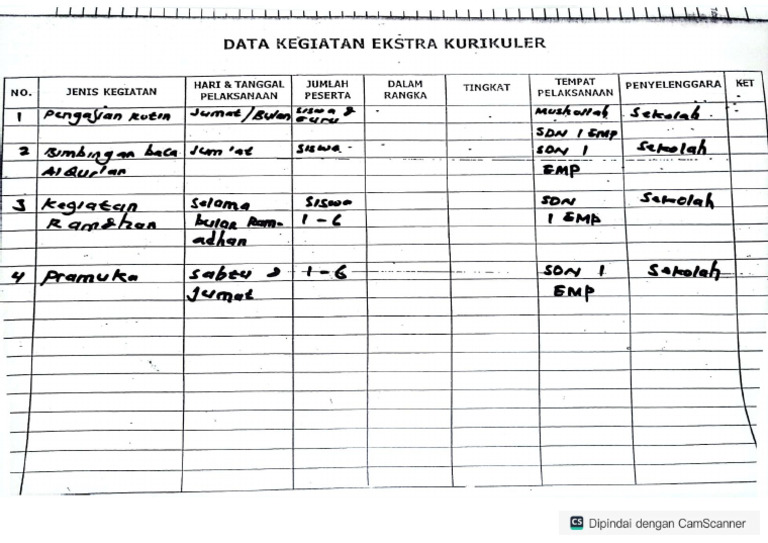 DATA KEGIATAN EKSTRA KURIKULER
NO. JENIS KEGIATAN HARI & TANGGAL PELAKSANAAN JUMLAH PESERTA DALAM RANGKA TINGKAT TEMPAT PELAKSANAAN PENYELENGGARA KET
1 Pengajian Rutin Jumat/Bulan Siswa & Mushollah Sekolah
Guru SDN 1 EMP
2 Bimbingan baca Jum'at Siswa SDN 1 Sekolah
Al Qur'an EMP
3 Kegiatan Selama Siswa SDN Sekolah
Ramdhan bulan Ram- 1-6 1 EMP
adhan
4 Pramuka Sabtu & 1-6 SDN 1 Sekolah
Jumat EMP
CS Dipindai dengan CamScanner